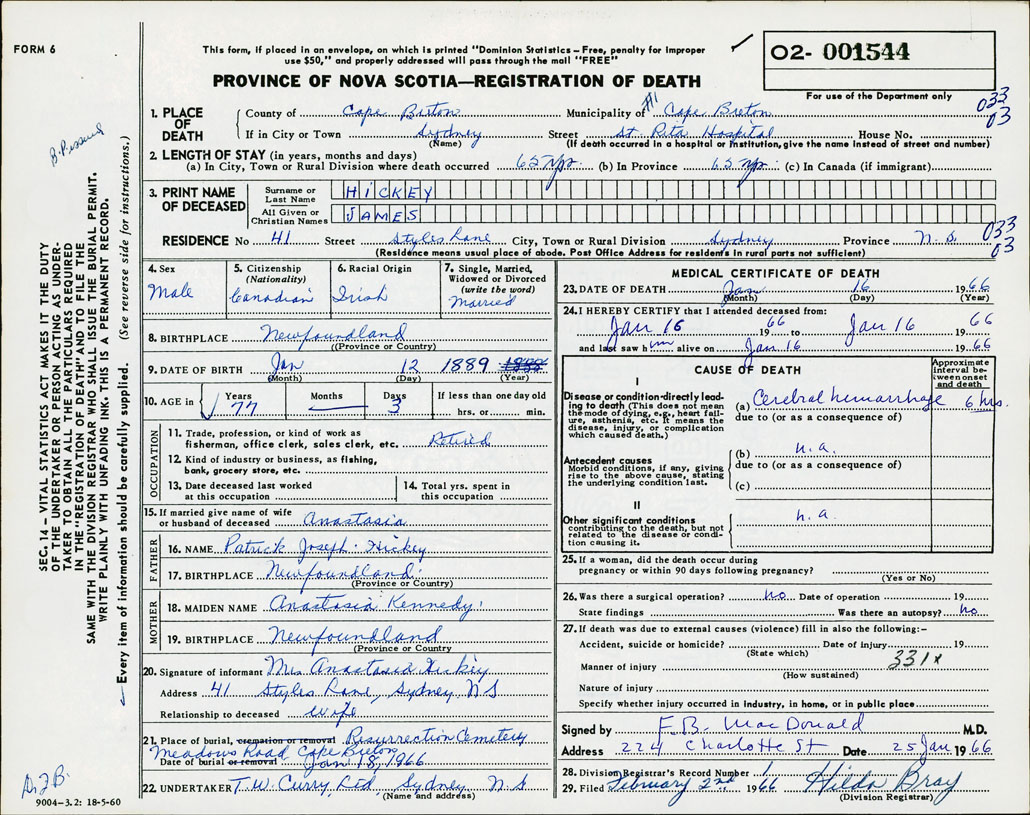 FORM 6
This form, if placed in an envelope, on which is printed "Dominion Statistics – Free, penalty for improper
use $50," and properly addressed will pass through the mail "FREE"
02- 001544
PROVINCE OF NOVA SCOTIA—REGISTRATION OF DEATH
For use of the Department only
1. PLACE OF DEATH County of Cape Breton Municipality of #1 Cape Breton 033 03
If in City or Town Sydney Street St. Rita Hospital House No.
(Name) (If death occurred in a hospital or institution, give the name instead of street and number)
2. LENGTH OF STAY (in years, months and days)
(a) In City, Town or Rural Division where death occurred 65 yrs. (b) In Province 65 yrs. (c) In Canada (if immigrant)
3. PRINT NAME OF DECEASED Surname or Last Name HICKEY
All Given or Christian Names JAMES
RESIDENCE No 41 Street Styles Lane City, Town or Rural Division Sydney Province N.S. 033 03
(Residence means usual place of abode. Post Office Address for residents in rural parts not sufficient)
4. Sex Male
5. Citizenship (Nationality) Canadian
6. Racial Origin Irish
7. Single, Married, Widowed or Divorced (write the word) Married
8. BIRTHPLACE Newfoundland
(Province or Country)
9. DATE OF BIRTH Jan 12 1889
(Month) (Day) (Year)
10. AGE in Years 77 Months Days 3 If less than one day old hrs. or min.
OCCUPATION
11. Trade, profession, or kind of work as
fisherman, office clerk, sales clerk, etc. Retired
12. Kind of industry or business, as fishing,
bank, grocery store, etc.
13. Date deceased last worked at this occupation
14. Total yrs. spent in this occupation
15. If married give name of wife
or husband of deceased Anastasia
FATHER
16. NAME Patrick Joseph Hickey
17. BIRTHPLACE Newfoundland
(Province or Country)
MOTHER
18. MAIDEN NAME Anastasia Kennedy
19. BIRTHPLACE Newfoundland
(Province or Country
20. Signature of informant Mrs Anastasia Hickey
Address 41 Styles Lane, Sydney NS
Relationship to deceased wife
21. Place of burial, cremation or removal Resurrection Cemetery
Meadows Road Cape Breton
Date of burial or removal Jan 18, 1966
22. UNDERTAKER T.W. Curry, Ltd, Sydney N S
(Name and address)
9004–3.2: 18-5-60
MEDICAL CERTIFICATE OF DEATH
23. DATE OF DEATH Jan 16 1966
(Month) (Day) (Year)
24. I HEREBY CERTIFY that I attended deceased from:
Jan 16 1966 to Jan 16 1966
and last saw him alive on Jan 16 1966
CAUSE OF DEATH
Approximate interval between onset and death
I
Disease or condition-directly leading to death (This does not mean the mode of dying, e.g., heart failure, asthenia, etc. It means the disease, injury, or complication which caused death.)
(a) Cerebral hemorrhage 6 hrs.
due to (or as a consequence of)
Antecedent causes
Morbid conditions, if any, giving rise to the above cause, stating the underlying condition last.
(b) n.a.
due to (or as a consequence of)
(c)
II
Other significant conditions
contributing to the death, but not related to the disease or condition causing it.
n.a.
25. If a woman, did the death occur during
pregnancy or within 90 days following pregnancy?
(Yes or No)
26. Was there a surgical operation? no Date of operation 19
State findings Was there an autopsy? no
27. If death was due to external causes (violence) fill in also the following:–
Accident, suicide or homicide? Date of injury 19
(State which) 331x
Manner of injury
(How sustained)
Nature of injury
Specify whether injury occurred in industry, in home, or in public place
Signed by F.B. MacDonald M.D.
Address 224 Charlotte St Date 25 Jan 1966
28. Division Registrar's Record Number 1
29. Filed February 2nd 1966 Hilda Bray
(Division Registrar)
SEC. 14 – VITAL STATISTICS ACT MAKES IT THE DUTY
OF THE UNDERTAKER OR PERSON ACTING AS UNDERTAKER TO OBTAIN ALL THE PARTICULARS REQUIRED
IN THE "REGISTRATION OF DEATH" AND TO FILE THE
SAME WITH THE DIVISION REGISTRAR WHO SHALL ISSUE THE BURIAL PERMIT.
WRITE PLAINLY WITH UNFADING INK. THIS IS A PERMANENT RECORD.
Every item of information should be carefully supplied. (See reverse side for instructions.)